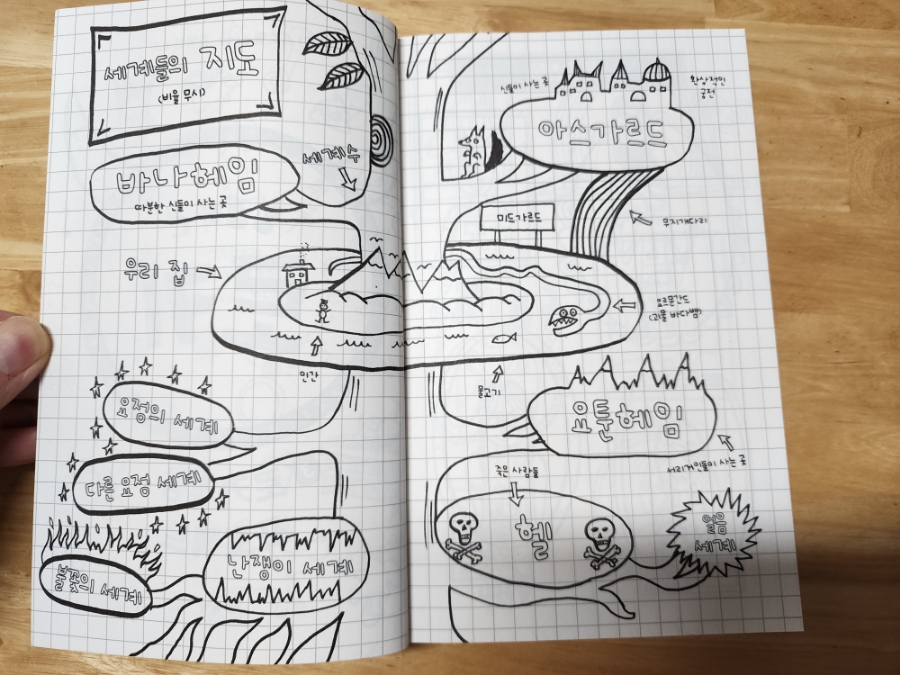 세계들의 지도
(비율 무시)
세계수
바나헤임
따분한 신들이 사는 곳
우리 집
인간
요정의 세계
다른 요정 세계
불꽃의 세계
난쟁이 세계
신들이 사는 곳
환상적인
궁전
아스가르드
미드가르드
무지개다리
요르문간드
(괴물 바다뱀)
물고기
요툰헤임
서리거인들이 사는 곳
죽은 사람들
헬
얼음
세계